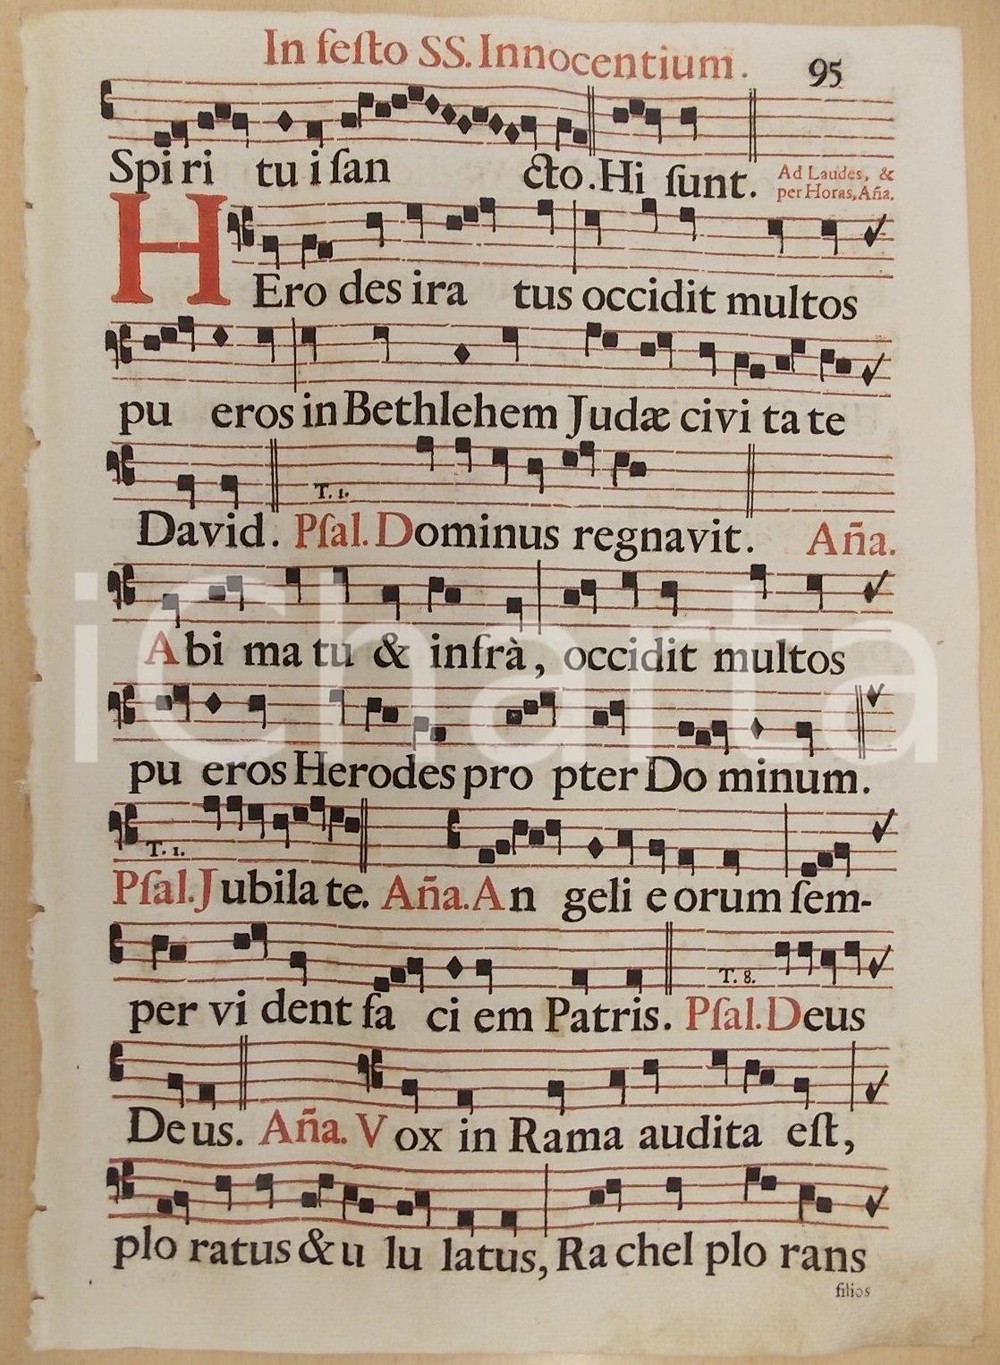 In feſto SS. Innocentium.
95
Spi ri tu i ſan cto. Hi ſunt.
Ad Laudes, &
per Horas, Aña.
HEro des ira tus occidit multos
pu eros in Bethlehem Judæ civi ta te
T. 1.
David. Pſal. Dominus regnavit. Aña.
A bi ma tu & infrà, occidit multos
pu eros Herodes pro pter Do minum.
T. 1.
Pſal. Jubila te. Aña. An geli e orum ſem-
per vi dent fa ci em Patris. Pſal. Deus
T. 8.
De us. Aña. Vox in Rama audita eſt,
plo ratus & u lu latus, Ra chel plo rans
filios
iCharta